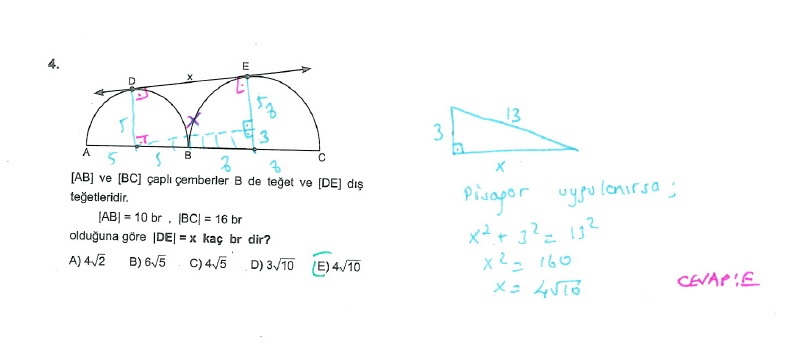 4.
D x E
5 x 5 8
3
A 5 5 B 8 8 C
[AB] ve [BC] çaplı çemberler B de teğet ve [DE] dış
teğetleridir.
|AB| = 10 br , |BC| = 16 br
olduğuna göre |DE| = x kaç br dir?
A) 4√2 B) 6√5 C) 4√5 D) 3√10 E) 4√10
3 13
x
Pisagor uygulanırsa;
x² + 3² = 13²
x² = 160
x = 4√10
CEVAP:E